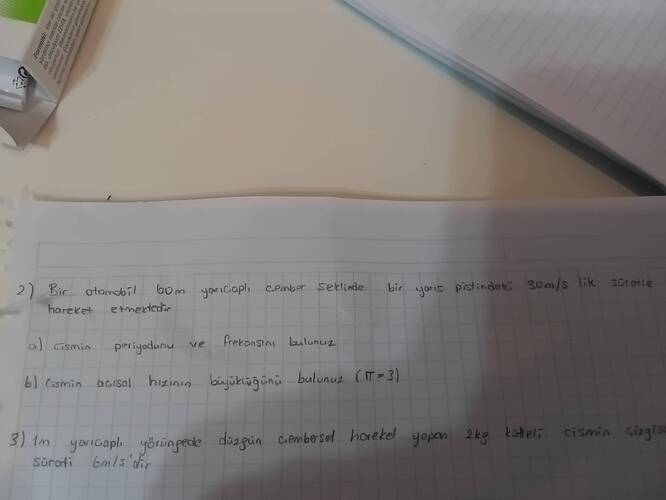 Formula:
2) Bir otomobil 60m yarıçaplı çember şeklinde bir yarış pistindeki 30m/s lik süratle
hareket etmektedir
a) cismin periyodunu ve frekansını bulunuz
b) cismin açısal hızının büyüklüğünü bulunuz (π=3)
3) 1m yarıçaplı yörüngede düzgün çembersel hareket yapan 2kg kütleli cismin çizgise
sürati 6m/s'dir